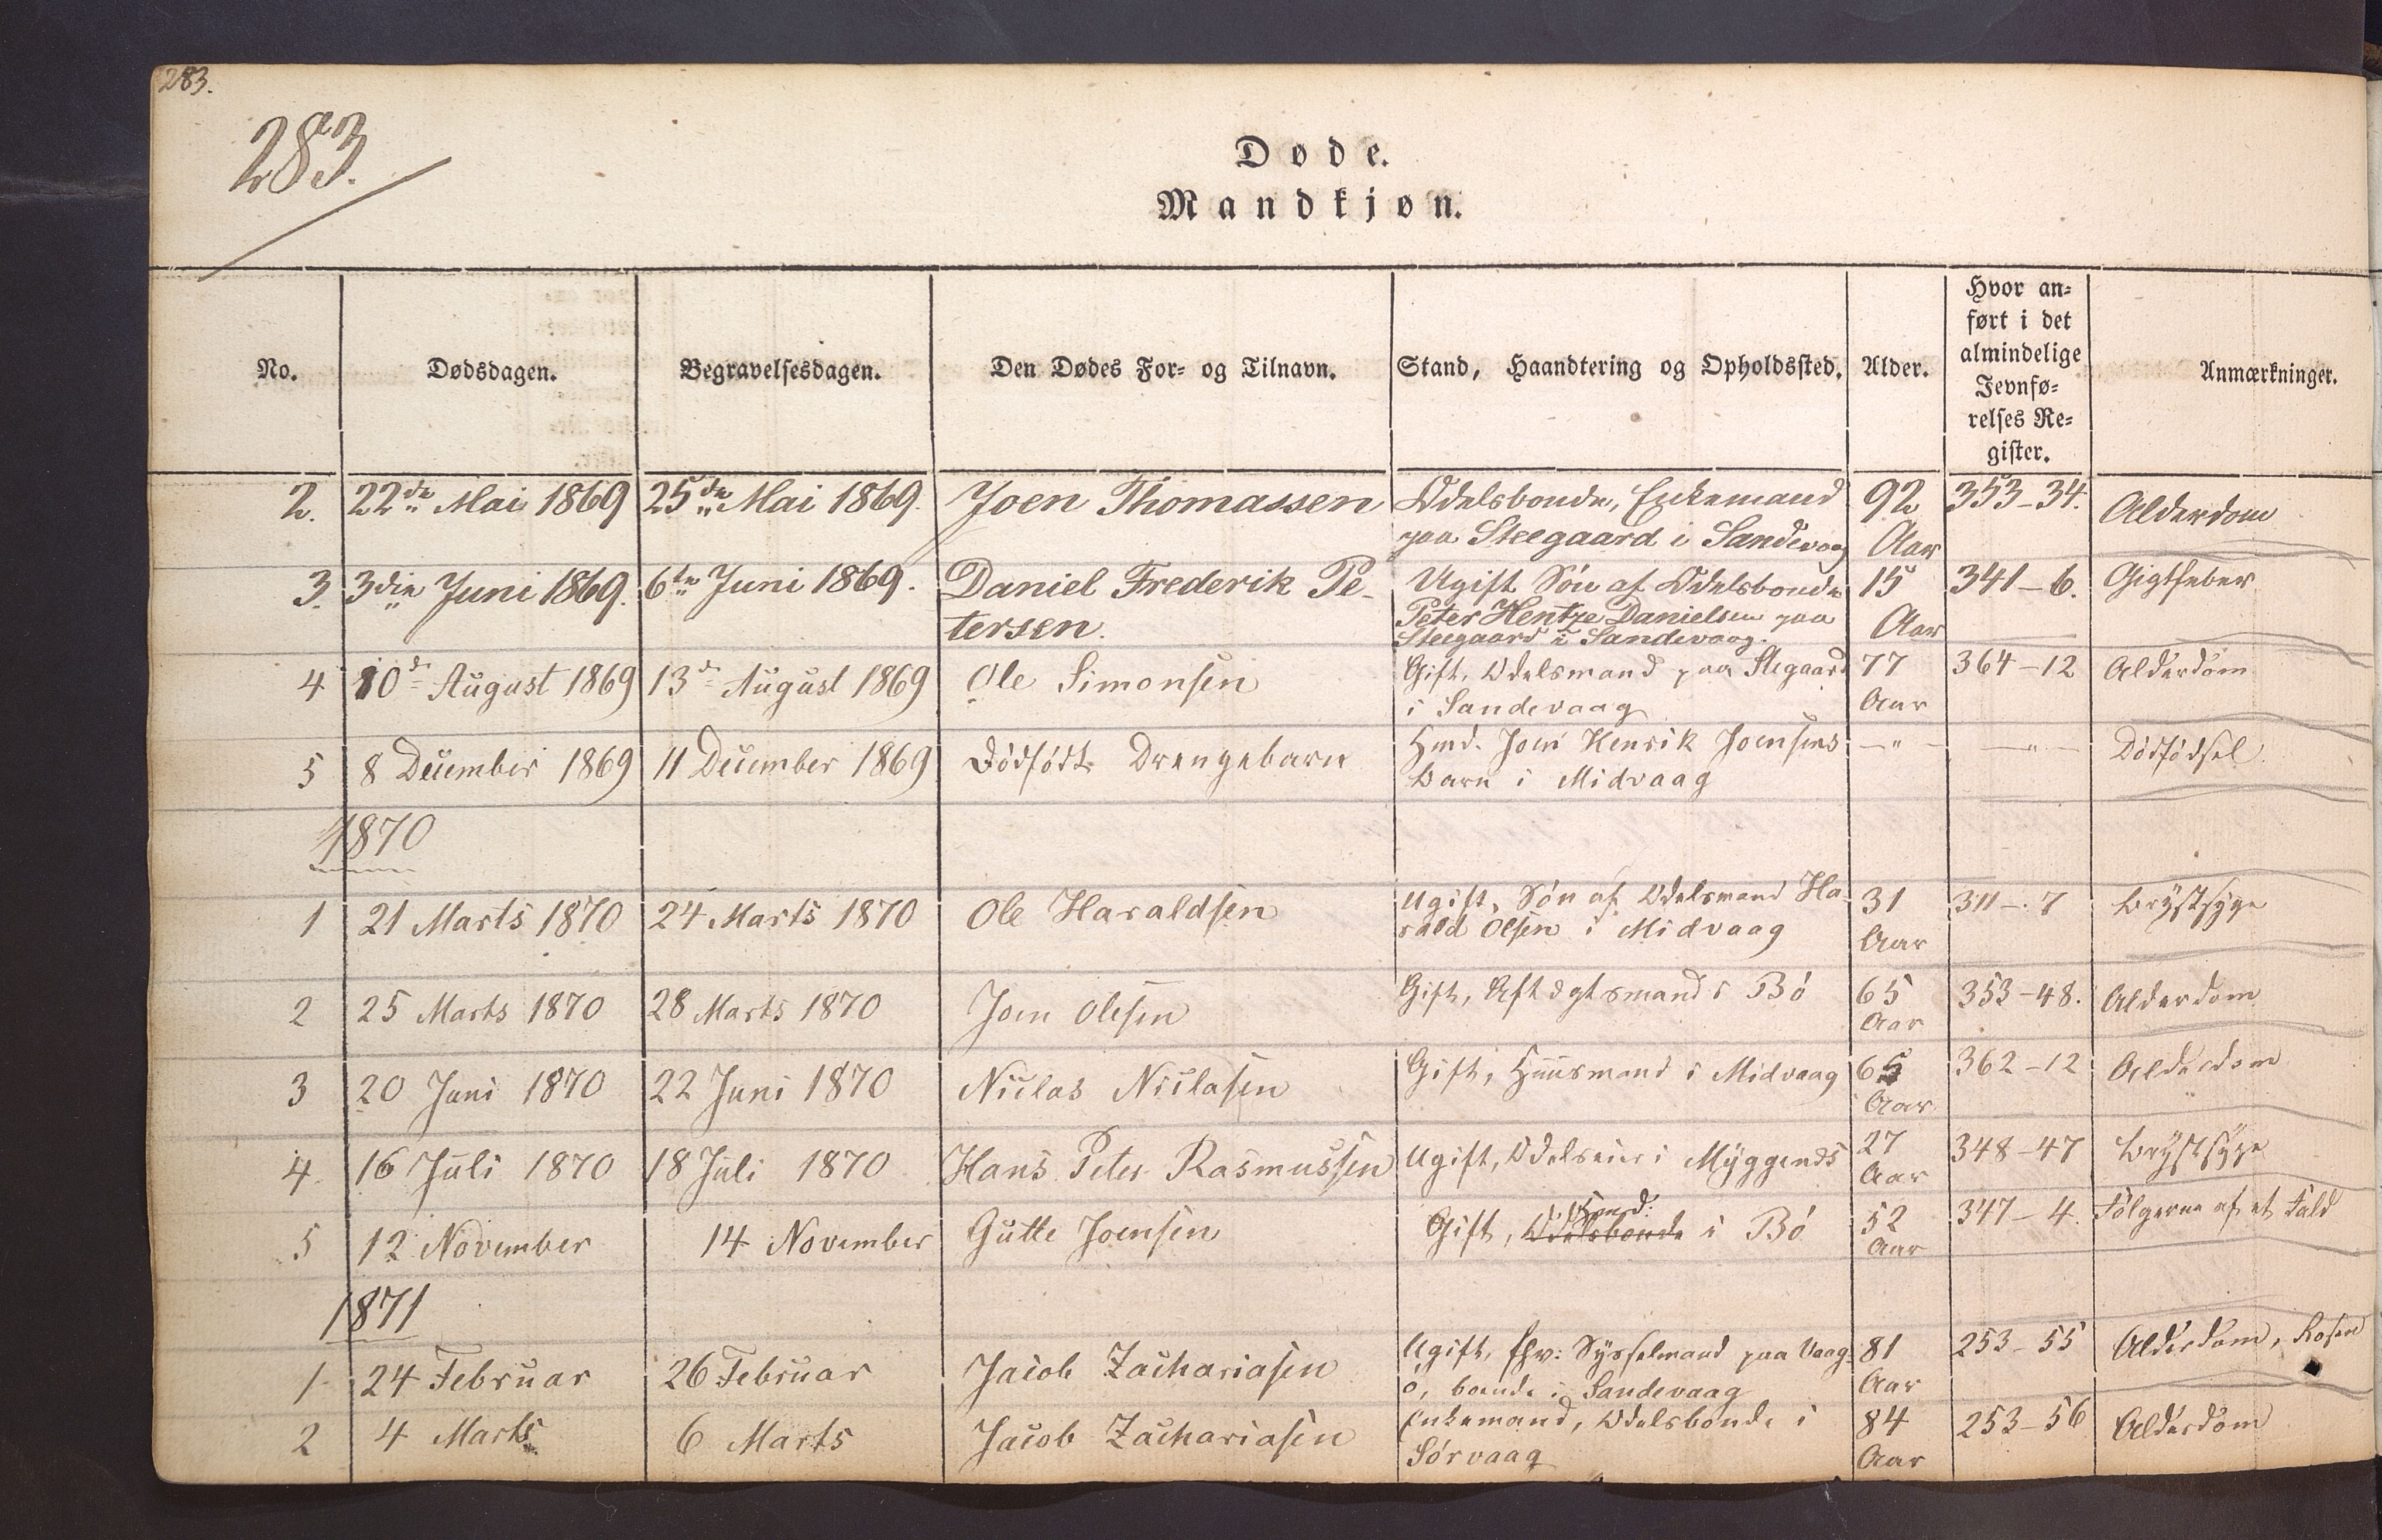 283.
283.
Døde.
Mandkjøn.
No.
Dødsdagen.
Begravelsesdagen.
Den Dødes For- og Tilnavn.
Stand, Haandtering og Opholdssted.
Alder.
Hvor an-
ført i det
almindelige
Jevnfø-
relses Re-
gister.
Anmærkninger.
2. 22de Mai 1869 25de Mai 1869. Joen Thomassen Odelsbonde, Enkemand 92 353-34. Alderdom
paa Steegaard i Sandevaag Aar
3. 3die Juni 1869. 6te Juni 1869. Daniel Frederik Pe- Ugift Søn af Odelsbonde 15 341-6. Gigtfeber
tersen. Peter Hentze Danielsen paa Aar
Steegaard i Sandevaag.
4 10de August 1869 13de August 1869 Ole Simonsen Gift, Odelsmand paa Stegaard 77 364-12 Alderdom
i Sandevaag Aar
5 8 December 1869 11 December 1869 Dødfødt Drengebarn Hmd. Joen Henrik Joensens —"— —"— Dødfødsel.
Barn i Midvaag
1870
1 21 Marts 1870 24 Marts 1870 Ole Haraldsen Ugift, Søn af Odelsmand Ha- 31 311-7 Brystsyge
rald Olsen i Midvaag Aar
2 25 Marts 1870 28 Marts 1870 Joen Olesen Gift, Aftægtsmand i Bø 65 353-48. Alderdom
Aar
3 20 Juni 1870 22 Juni 1870 Niclas Niclasen Gift, Huusmand i Midvaag 65 362-12 Alderdom
Aar
4. 16 Juli 1870 18 Juli 1870 Hans Peter Rasmussen Ugift, Odelseier i Myggenæs 27 348-47 Brystsyge
Aar
Hmd:
5 12 November 14 November Gutte Joensen Gift, Odelsbonde i Bø 52 347-4. Følgerne af et Fald
Aar
1871
1 24 Februar 26 Februar Jacob Zachariasen Ugift, fhv: Sysselmand paa Vaag- 81 253-55 Alderdom, Rosen
ø, bonde i Sandevaag Aar
2 4 Marts 6 Marts Jacob Zachariasen Enkemand, Odelsbonde i 84 253-56 Alderdom
Sørvaag Aar